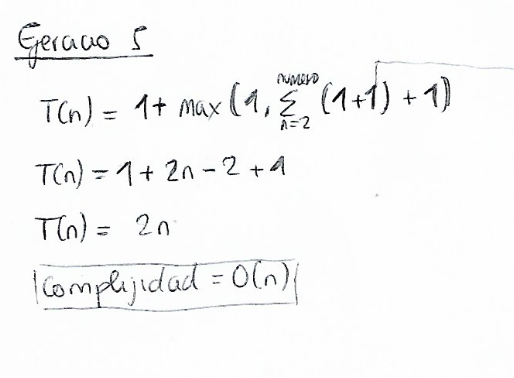 Ejercicio 5
T(n) = 1 + max (1, ∑_{n=2}^{numero} (1+1) + 1)
T(n) = 1 + 2n - 2 + 1
T(n) = 2n
Complijidad = O(n)